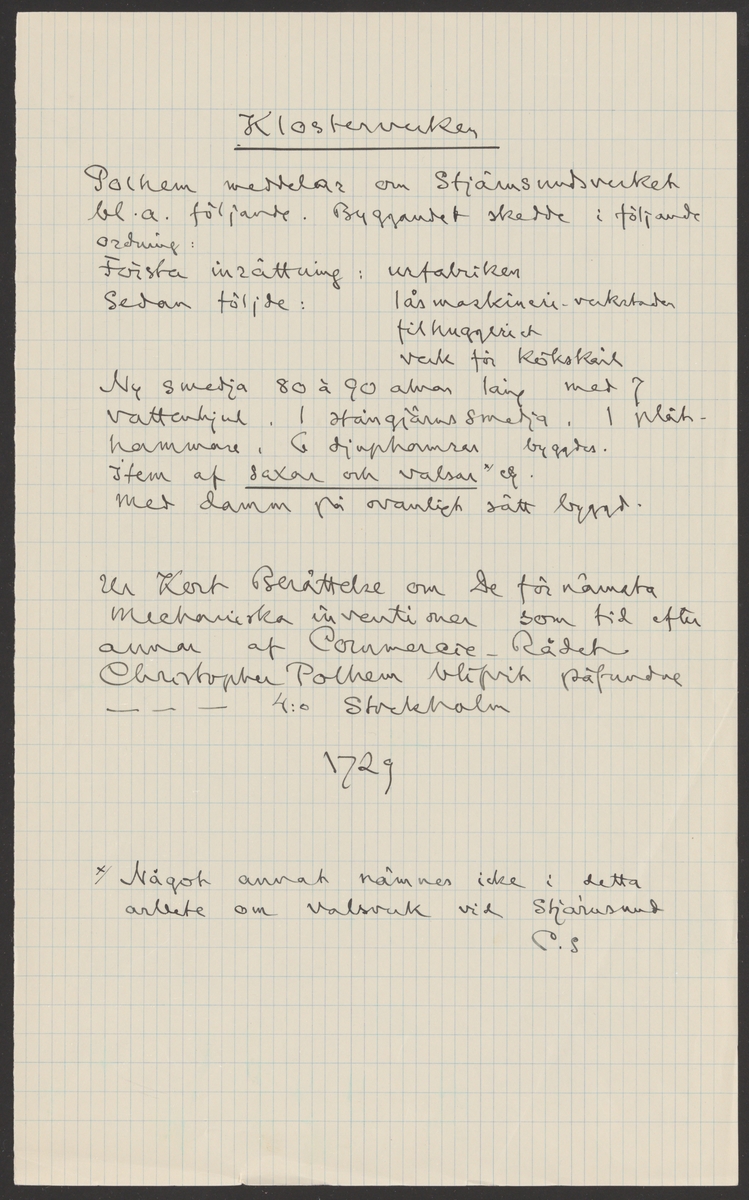 Klosterverken
Polhem meddelar om Stjärnsundsverket
bl.a. följande. Byggandet skedde i följande
ordning:
Första inrättning: urfabriken
Sedan följde: låsmaskineri-verkstaden
filhuggeriet
verk för kökskärl
Ny smedja 80 à 90 alnar lång med 7
vattenhjul, 1 stångjärnssmedja, 1 plåt-
hammare, 6 djuphamrar byggdes.
Item af saxar och valsar x/
med damm på ovanligt sätt byggd.
Ur Kort Berättelse om De förnämsta
Mechaniska inventioner som tid efter
annan af Commercie-Rådet
Christopher Polhem blifvit påfundne
— — — 4:o Stockholm
1729
x/ Något annat nämnes icke i detta
arbete om valsverk vid Stjärnsund
C.S